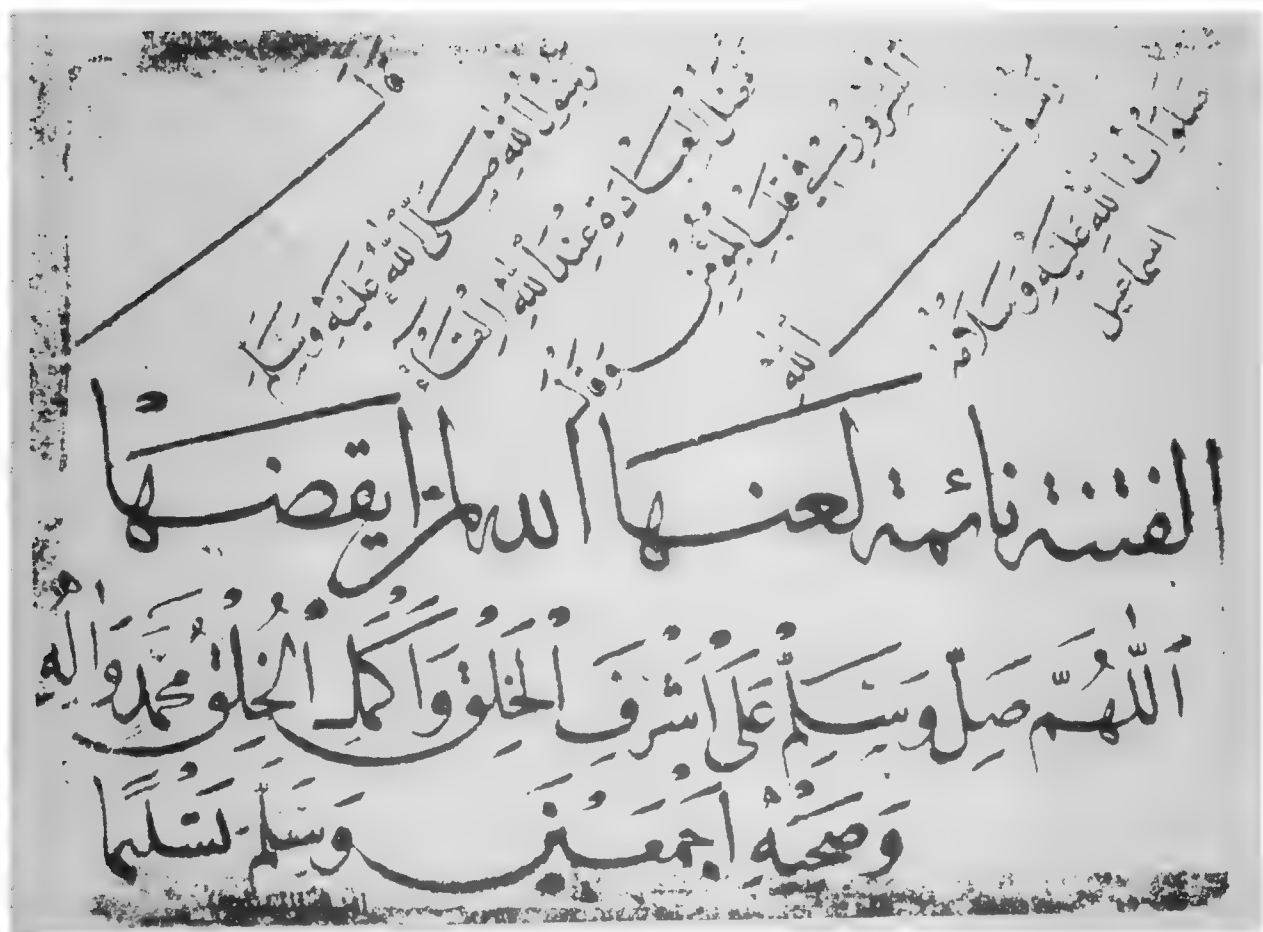 قال
رسول الله صلى الله عليه وسلم
فضل العبادة عند الله القاء
السرور في قلب المؤمن وقال
رسول الله
صلوات الله عليه وسلامه
اسماعيل
الفتنة نائمة لعنها الله لمن ايقضها
اَللّٰهُمَّ صَلِّ وَسَلِّمْ عَلَى اَشْرَفِ الْخَلْقِ وَاَكْمَلِ الْخُلُقِ مُحَمَّدٍ وَاٰلِهِ
وَصَحْبِهِ اَجْمَعِيْنَ وَسَلَّمَ تَسْلِيمًا